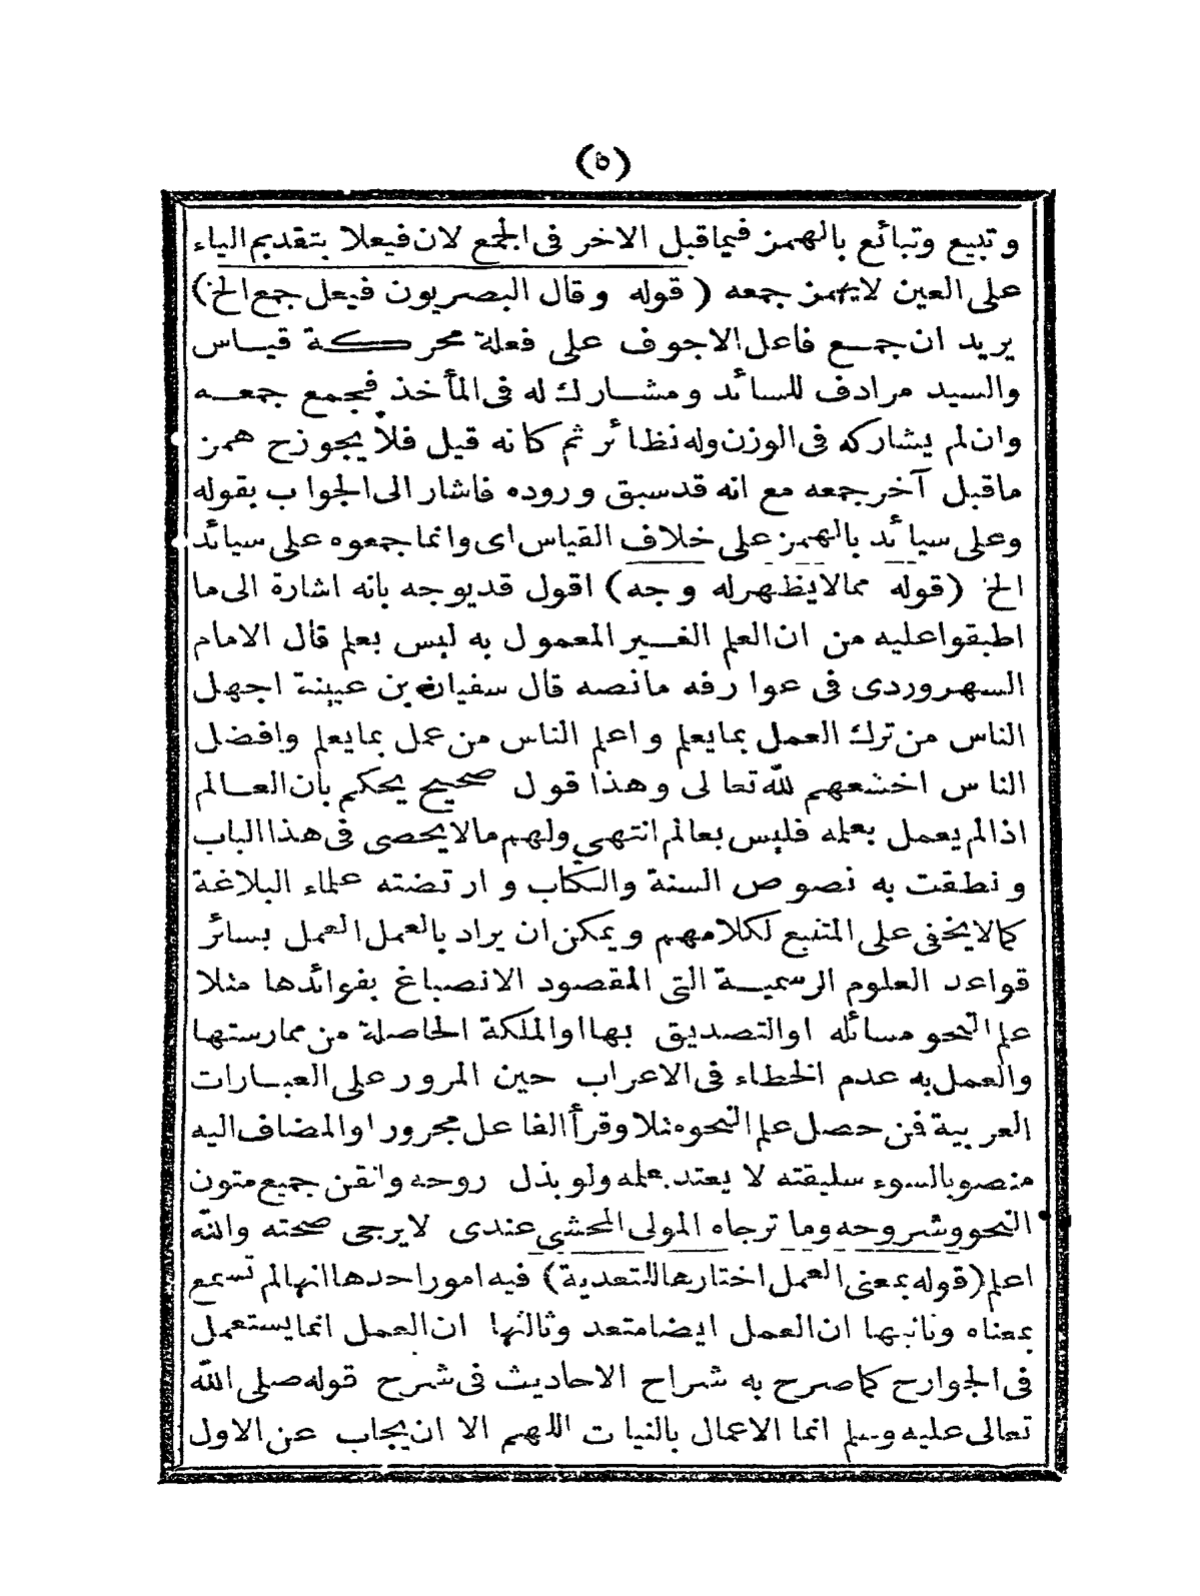 (٥)
وتبيع وتبائع بالهمز فيما قبل الاخر فى الجمع لان فيعلا بتقديم الياء
على العين لايهمز جمعه ( قوله وقال البصريون فيعل جمع الخ)
يريد ان جمع فاعل الاجوف على فعلة محركة قياس
والسيد مرادف للسائد ومشارك له فى المأخذ فيجمع جمعه
وان لم يشاركه فى الوزن وله نظائر ثم كانه قيل فلا يجوز ح همز
ماقبل آخر جمعه مع انه قدسبق وروده فاشار الى الجواب بقوله
وعلى سيائد بالهمز على خلاف القياس اى وانما جمعوه على سيائد
الخ (قوله ممالايظهرله وجه) اقول قديوجه بانه اشارة الى ما
اطبقوا عليه من ان العلم الغير المعمول به ليس بعلم قال الامام
السهروردى فى عوارفه مانصه قال سفيان بن عيينة اجهل
الناس من ترك العمل بمايعلم واعلم الناس من عمل بمايعلم وافضل
الناس اخشعهم لله تعالى وهذا قول صحيح يحكم بان العالم
اذالم يعمل بعلمه فليس بعالم انتهى ولهم مالايحصى فى هذا الباب
ونطقت به نصوص السنة والكتاب وارتضته علماء البلاغة
كمالايخفى على المتتبع لكلامهم ويمكن ان يراد بالعمل العمل بسائر
قواعد العلوم الرسمية التى المقصود الانصباغ بفوائدها مثلا
علم النحو مسائله اوالتصديق بها اوالملكة الحاصلة من ممارستها
والعمل به عدم الخطاء فى الاعراب حين المرور على العبارات
العربية فمن حصل علم النحو مثلا وقرأ الفاعل مجرورا والمضاف اليه
منصوبا لسوء سليقته لا يعتد بعلمه ولو بذل روحه واتقن جميع متون
النحو وشروحه وما ترجاه المولى المحشى عندى لايرجى صحته والله
اعلم (قوله بمعنى العمل اختارها للتعدية) فيه امور احدها انها لم تسمع
بمعناه وثانيها ان العمل ايضا متعد وثالثها ان العمل انما يستعمل
فى الجوارح كما صرح به شراح الاحاديث فى شرح قوله صلى الله
تعالى عليه وسلم انما الاعمال بالنيات اللهم الا ان يجاب عن الاول